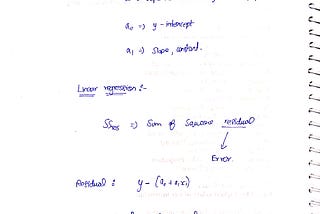 a₀ => y - intercept
a₁ => slope, constant.
Linear regression :-
SSres => Sum of Square residual
Error.
Residual : y - (a₀ + a₁x₁)